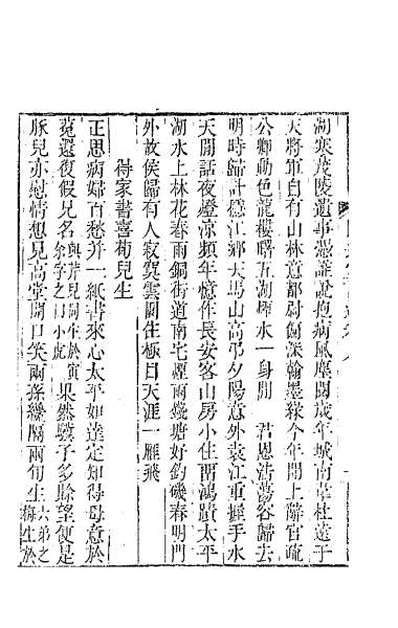 湖寒茂陵遺事憑誰說抱病風塵閱歲年城南韋杜遠于
天將軍自有山林意都尉偏深翰墨緣今年閶上辭官疏
公卿動色龍樓曙五湖烟水一身閒　君恩浩蕩容歸去
明時歸計穩江鄉天馬山高弔夕陽意外袁江重握手水
天閒話夜燈涼頻年憶作長安客山房小住留鴻蹟太平
湖水上林花春雨銅街道南宅煙雨錢塘好釣磯春明門
外故侯歸有人寂寞雲閒住極目天涯一雁飛
得家書喜荀兒生
正思病婦百愁并一紙書來心太平如達定知得母意於
菟還復假兒名與芹兒同生於寅余字之曰小虎果然犢子多餘望便是
豚兒亦慰情想見高堂開口笑兩孫纔隔兩旬生六弟之梅生於